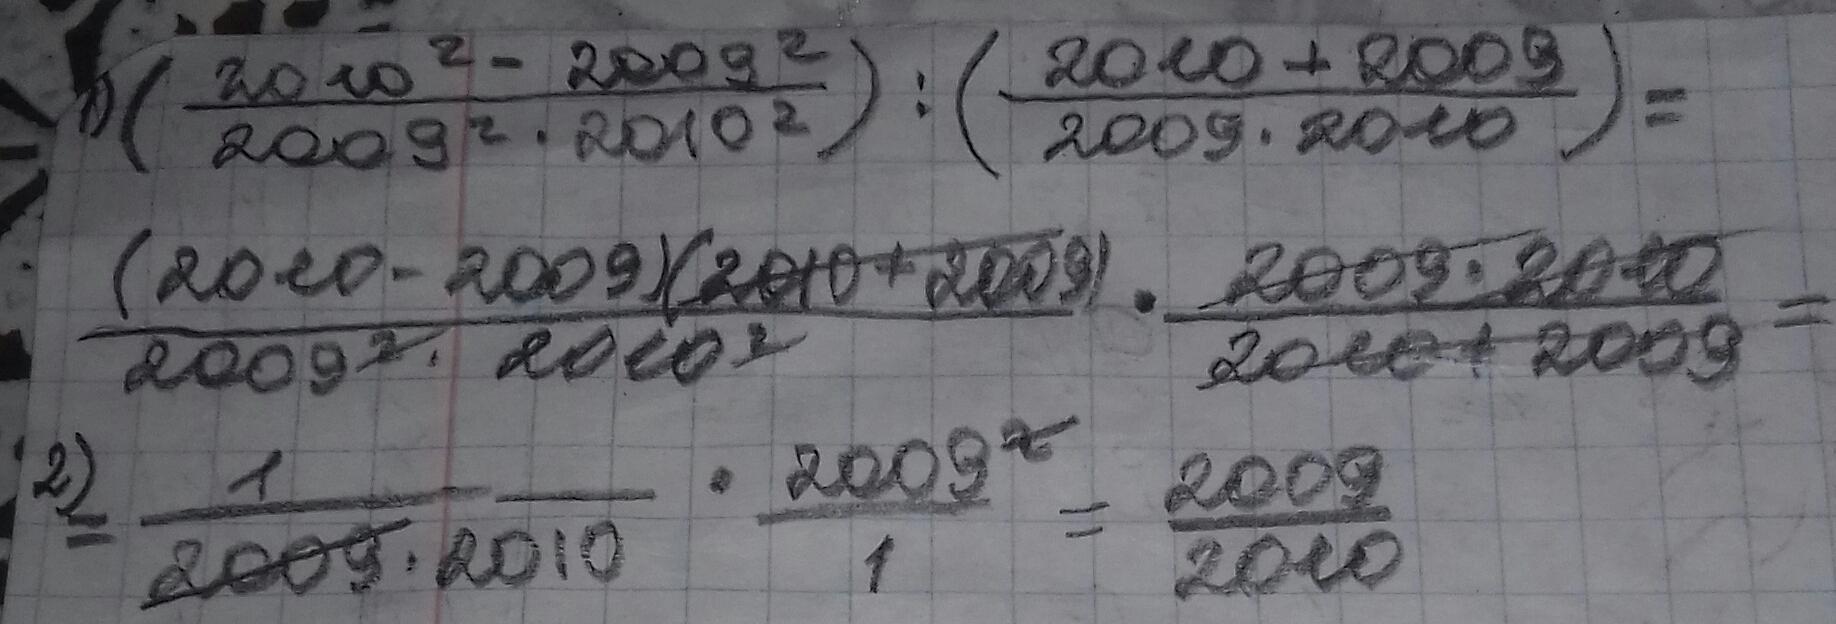 1) (2010² - 2009² / 2009² · 2010²) : (2010 + 2009 / 2009 · 2010) =
(2010 - 2009)(2010 + 2009) / 2009² · 2010² · 2009 · 2010 / 2010 + 2009 =
2) = 1 / 2009 · 2010 · 2009² / 1 = 2009 / 2010